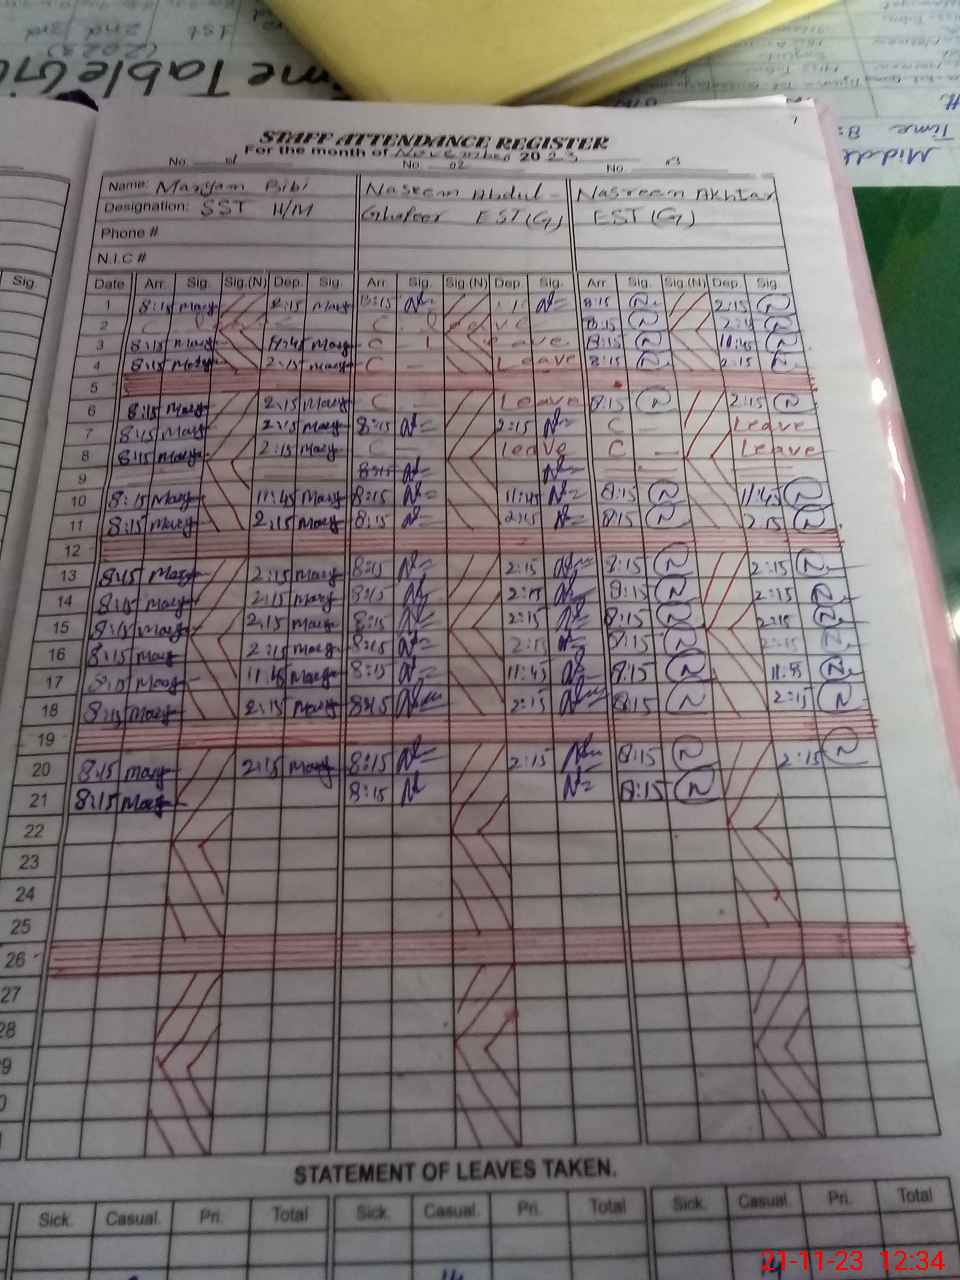 STAFF ATTENDANCE REGISTER
For the month of November 2023
No. 01 No. 02 No. 03
Name: Maryam Bibi Naseem Abdul- Nasreem Akhtar
Designation: SST H/M Ghafoor EST(G) EST(G)
Phone #
N.I.C #
Sig.
Date Arr. Sig. Sig.(N) Dep. Sig. Arr Sig. Sig.(N) Dep. Sig. Arr Sig. Sig.(N) Dep. Sig.
1 8:15 Mary 2:15 Mary 8:15 8:15 N 2:15 N
2 C Leave 8:15 N 2:15 N
3 8:15 Mary 11:45 Mary C Leave 8:15 N 11:45 N
4 8:15 Mary 2:15 Mary C - Leave 8:15 N 2:15 N
5
6 8:15 Mary 2:15 Mary C - Leave 8:15 N 2:15 N
7 8:15 Mary 2:15 Mary 8:15 2:15 C - Leave
8 8:15 Mary 2:15 Mary C - leave C - Leave
9
10 8:15 Mary 11:45 Mary 8:15 11:45 8:15 N 11:45 N
11 8:15 Mary 2:15 Mary 8:15 2:15 8:15 N 2:15 N
12
13 8:15 Mary 2:15 Mary 8:15 2:15 8:15 N 2:15 N
14 8:15 Mary 2:15 Mary 8:15 2:15 8:15 N 2:15 N
15 8:15 Mary 2:15 Mary 8:15 2:15 8:15 N 2:15 N
16 8:15 Mary 2:15 Mary 8:15 2:15 8:15 N 2:15 N
17 8:15 Mary 11:45 Mary 8:15 11:45 8:15 N 11:45 N
18 8:15 Mary 2:15 Mary 8:15 2:15 8:15 N 2:15 N
19
20 8:15 Mary 2:15 Mary 8:15 2:15 8:15 N 2:15 N
21 8:15 Mary 8:15 8:15 N
22
23
24
25
26
27
28
9
0
STATEMENT OF LEAVES TAKEN.
Sick. Casual. Pri. Total Sick. Casual. Pri. Total Sick. Casual. Pri. Total
21-11-23 12:34
Time Table
(2023)
1st 2nd 3rd
Time 8:
Middl